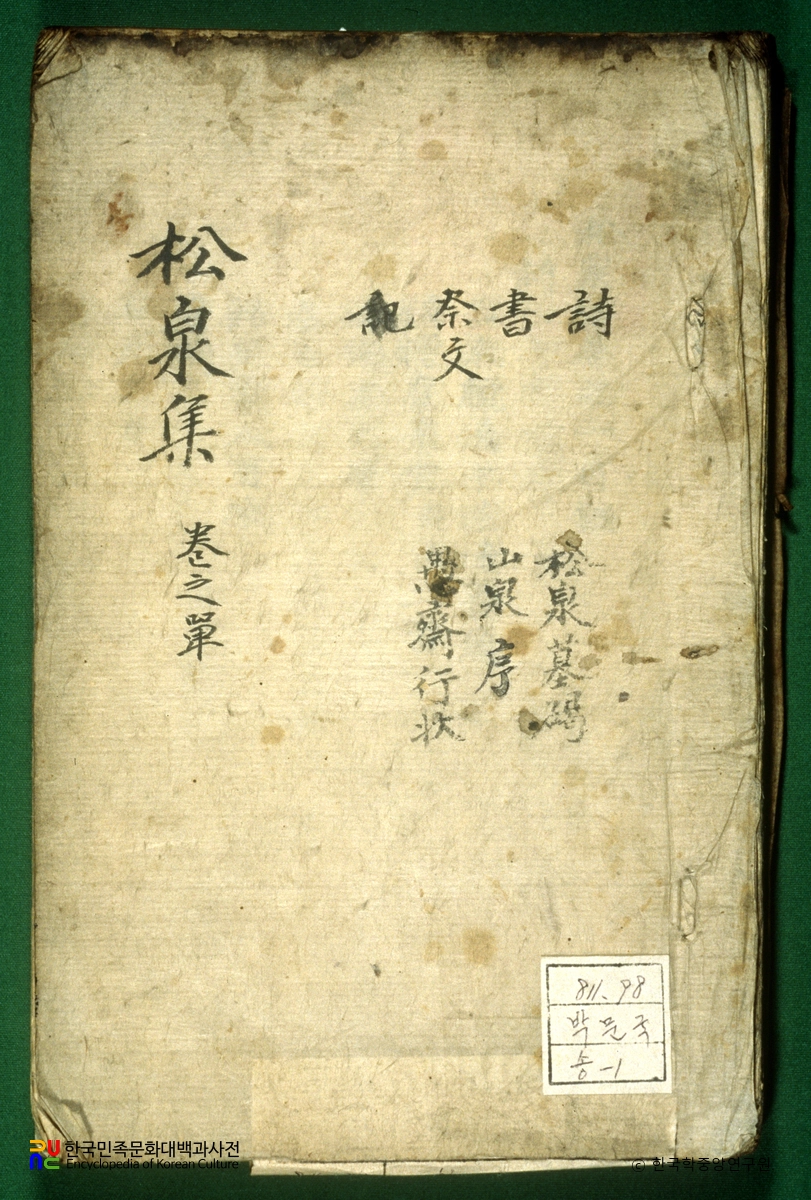 松泉集 卷之單
詩
書
祭文
記
松泉墓碣
山泉序
愚齋行狀
811.98
박문국
송-1
한국민족문화대백과사전
Encyclopedia of Korean Culture
© 한국학중앙연구원